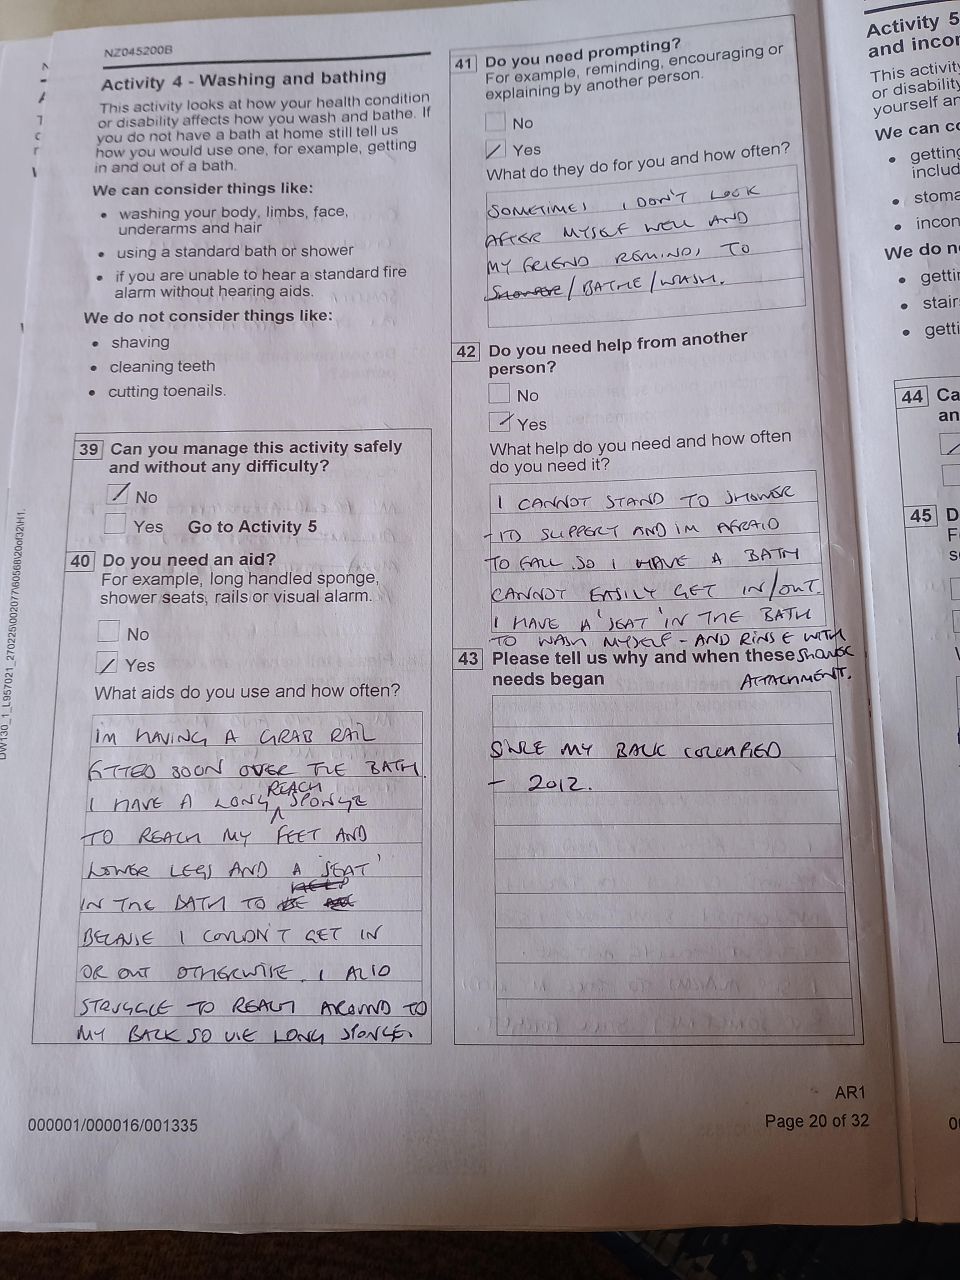 NZ045200B
Activity 4 - Washing and bathing
This activity looks at how your health condition
or disability affects how you wash and bathe. If
you do not have a bath at home still tell us
how you would use one, for example, getting
in and out of a bath.
We can consider things like:
• washing your body, limbs, face,
underarms and hair
• using a standard bath or shower
• if you are unable to hear a standard fire
alarm without hearing aids.
We do not consider things like:
• shaving
• cleaning teeth
• cutting toenails.
39 Can you manage this activity safely
and without any difficulty?
No
Yes Go to Activity 5
40 Do you need an aid?
For example, long handled sponge,
shower seats, rails or visual alarm.
No
Yes
What aids do you use and how often?
IM HAVING A GRAB RAIL
FITTED SOON OVER THE BATH.
I HAVE A LONG REACH SPONGE
TO REACH MY FEET AND
LOWER LEGS AND A 'SEAT'
IN THE BATH TO HELP
BECAUSE I COULDN'T GET IN
OR OUT OTHERWISE. I ALSO
STRUGGLE TO REACH AROUND TO
MY BACK SO USE LONG SPONGE.
41 Do you need prompting?
For example, reminding, encouraging or
explaining by another person.
No
Yes
What do they do for you and how often?
SOMETIMES I DON'T LOOK
AFTER MYSELF WELL AND
MY FRIEND REMINDS TO
SHOWER/BATHE/WASH.
42 Do you need help from another
person?
No
Yes
What help do you need and how often
do you need it?
I CANNOT STAND TO SHOWER
ITS SLIPPERY AND IM AFRAID
TO FALL. SO I HAVE A BATH
CANNOT EASILY GET IN/OUT.
I HAVE A 'SEAT' IN THE BATH
TO WASH MYSELF - AND RINSE WITH
SHOWER
ATTACHMENT.
43 Please tell us why and when these
needs began
SINCE MY BACK COLLAPSED
- 2012.
AR1
000001/000016/001335
Page 20 of 32
DW130_1_L957021_270225\002077\60568\20of32\H1.
Activity 5
and incon
This activity
or disability
yourself an
We can co
• getting
includ
• stoma
• incon
We do n
• getti
• stair
• getti
44 Ca
an
45 D